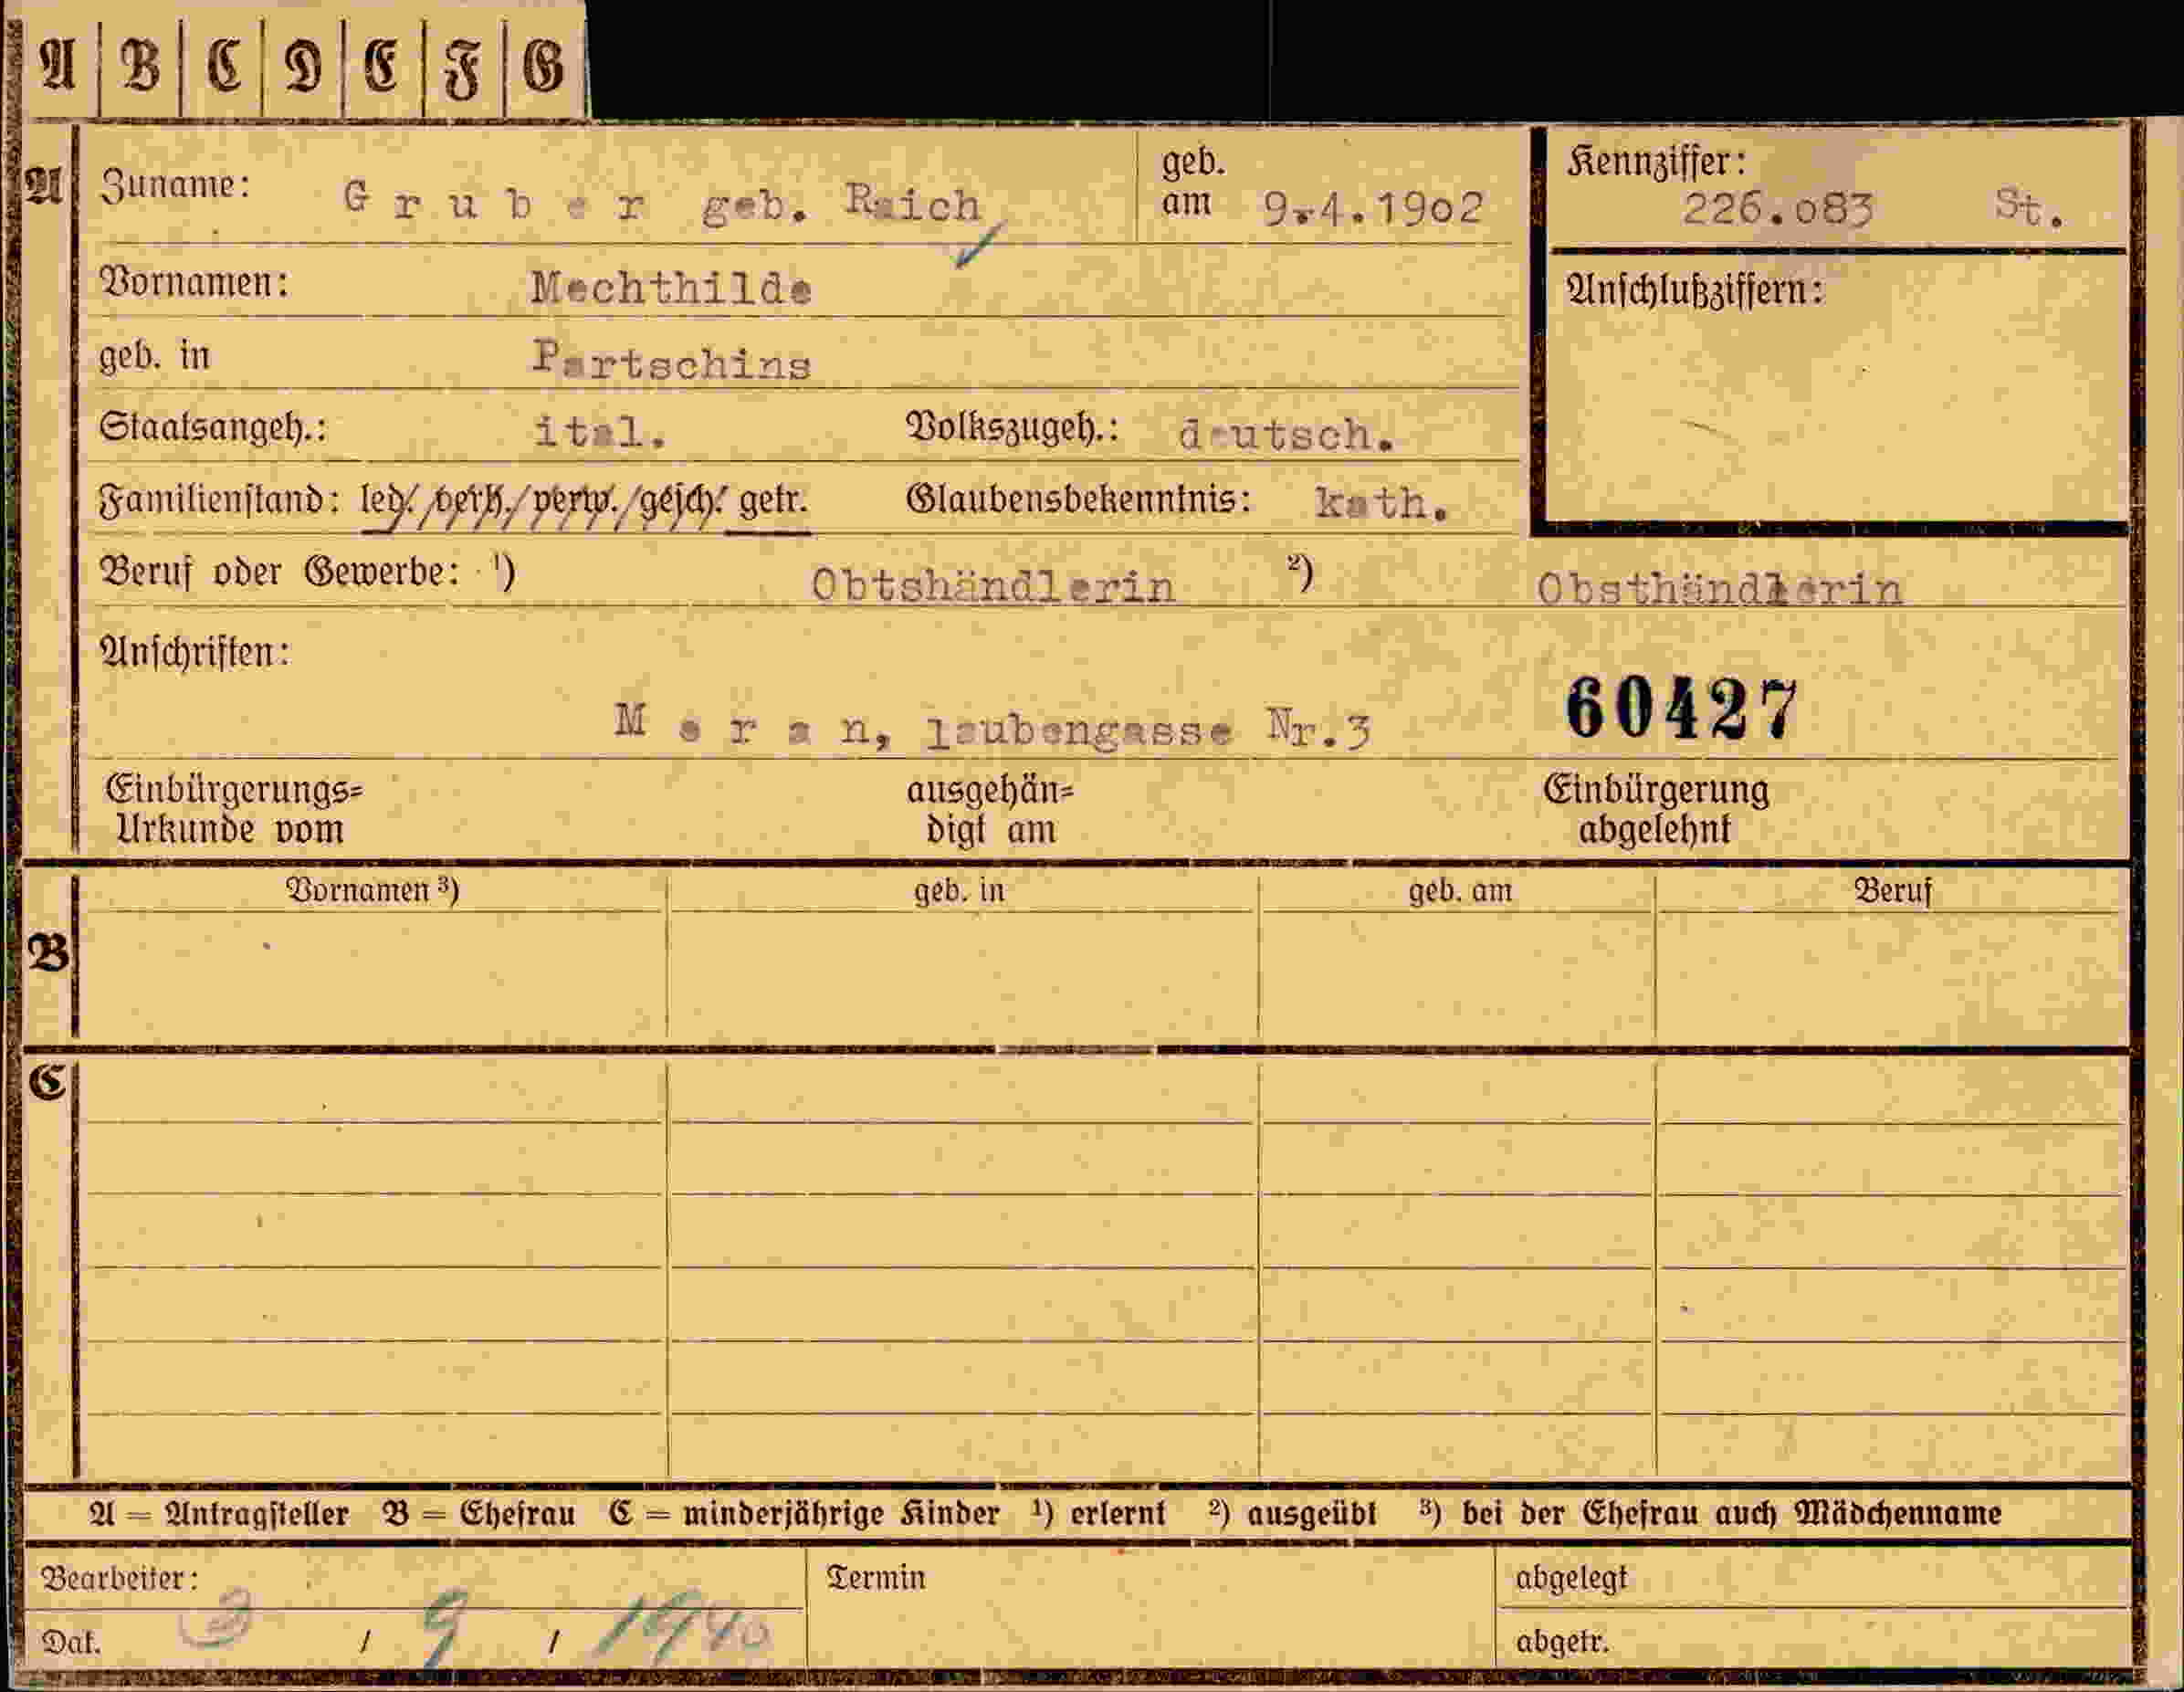 A B C D E F G
A Zuname: Gruber geb. Raich geb. am 9.4.1902 Kennziffer: 226.083 St.
Vornamen: Mechthilde Anschlußziffern:
geb. in Partschins
Staatsangeh.: ital. Volkszugeh.: deutsch.
Familienstand: led./verh./verw./gesch./getr. Glaubensbekenntnis: kath.
Beruf oder Gewerbe: ¹) Obtshändlerin ²) Obsthändlerin
Anschriften:
Meran, laubengasse Nr.3 60427
Einbürgerungs= ausgehän= Einbürgerung
Urkunde vom digt am abgelehnt
Vornamen ³) geb. in geb. am Beruf
B
C
A = Antragsteller B = Ehefrau C = minderjährige Kinder ¹) erlernt ²) ausgeübt ³) bei der Ehefrau auch Mädchenname
Bearbeiter: Termin abgelegt
Dat. 3 / 9 / 1940 abgetr.